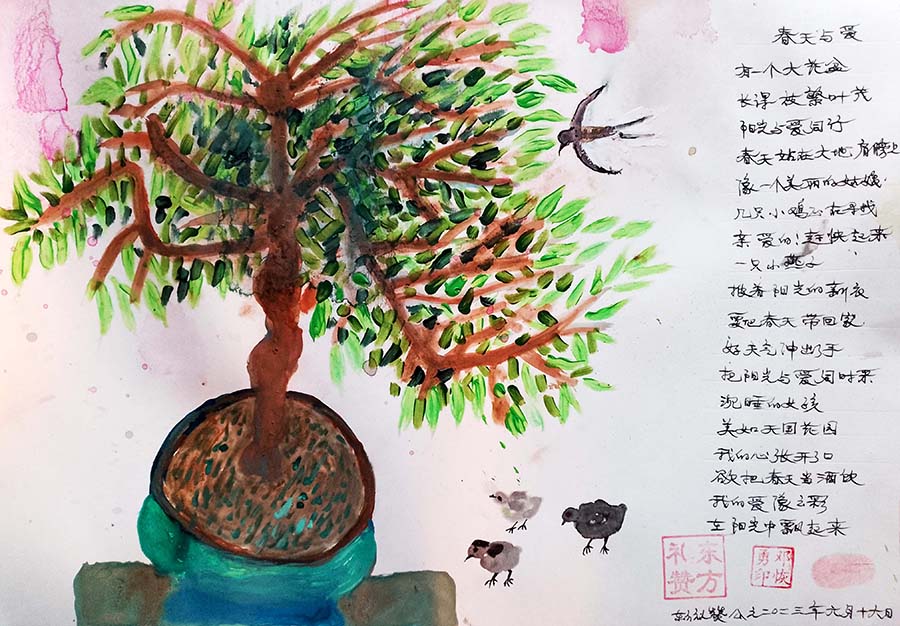 春天与爱
有一个大花盆
长深枝繁叶花
阳光与爱同行
春天站在大地肩膀上
像一个美丽的姑娘
几只小鸡正在寻找
亲爱的！赶快起来
一只小燕子
披着阳光的新衣
要把春天带回家
好天气冲出了手
把阳光与爱同时采
沉睡的女孩
美如天国花园
我的心张开了口
欲把春天当酒饮
我的爱像云彩
在阳光中飘起来
东方礼赞
邓恢勇印
东方礼赞公元二〇二三年六月十六日